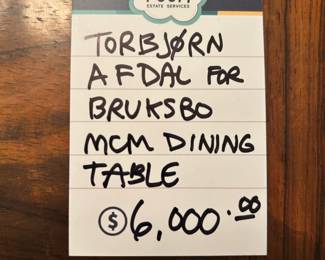 ESTATE SERVICES
TORBJØRN
AFDAL FOR
BRUKSBO
MCM DINING
TABLE
$6,000.00